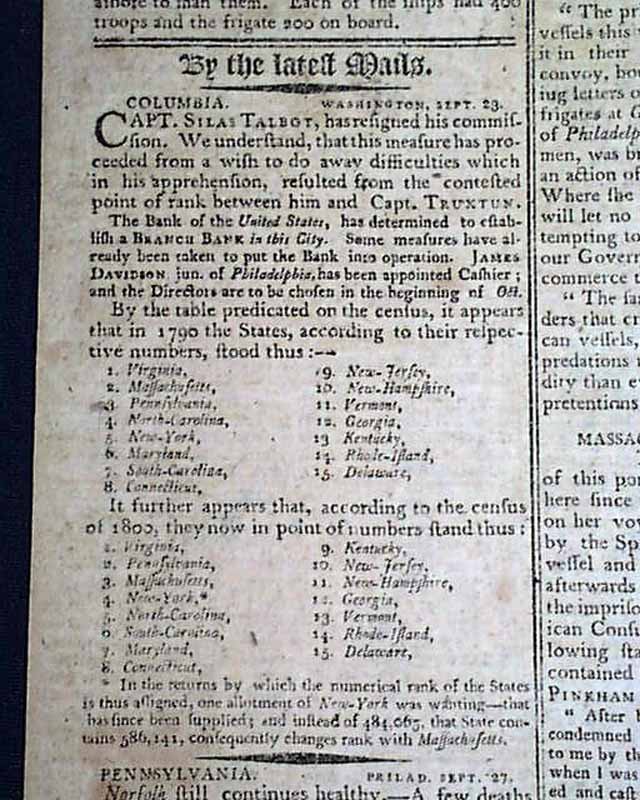 troops and the frigate 200 on board.
By the lateſt Mails.
COLUMBIA. WASHINGTON, SEPT. 23.
CAPT. SILAS TALBOT, has reſigned his commiſ-
ſion. We underſtand, that this meaſure has pro-
ceeded from a wiſh to do away difficulties which
in his apprehenſion, reſulted from the conteſted
point of rank between him and Capt. TRUXTUN.
The Bank of the United States, has determined to eſtab-
liſh a BRANCH BANK in this City. Some meaſures have al-
ready been taken to put the Bank into operation. JAMES
DAVIDSON jun. of Philadelphia, has been appointed Caſhier;
and the Directors are to be choſen in the beginning of Oct.
By the table predicated on the cenſus, it appears
that in 1790 the States, according to their reſpec-
tive numbers, ſtood thus:—
1. Virginia,
2. Maſſachuſetts,
3. Pennſylvania,
4. North-Carolina,
5. New-York,
6. Maryland,
7. South-Carolina,
8. Connecticut,
9. New-Jerſey,
10. New-Hampſhire,
11. Vermont,
12. Georgia,
13 Kentucky,
14. Rhode-Iſland,
15. Delaware,
It further appears that, according to the cenſus
of 1800, they now in point of numbers ſtand thus:
1. Virginia,
2. Pennſylvania,
3. Maſſachuſetts,
4. New-York,*
5. North-Carolina,
6. South-Carolina,
7. Maryland,
8. Connecticut,
9. Kentucky,
10. New-Jerſey,
11. New-Hampſhire,
12. Georgia,
13. Vermont,
14. Rhode-Iſland,
15. Delaware,
* In the returns by which the numerical rank of the States
is thus aſſigned, one allotment of New-York was wanting—that
has ſince been ſupplied; and inſtead of 484,065, that State con-
tains 586,141, conſequently changes rank with Maſſachuſetts.
PENNSYLVANIA. PHILAD. SEPT. 27.
Norfolk ſtill continues healthy.—A few deaths
“ The
veſſels this
it in their
convoy,
letters
frigates at
of
men, was
an action of
Where ſhe
will let no
tempting to
our
commerce
“ The
ders that
can veſſels,
dity than
pretentions
of this
here ſince
on her
by the
veſſel and
afterwards
the
ican
lowing
contained
PINKHAM
“ After
condemned
to me by
when I was
ed and